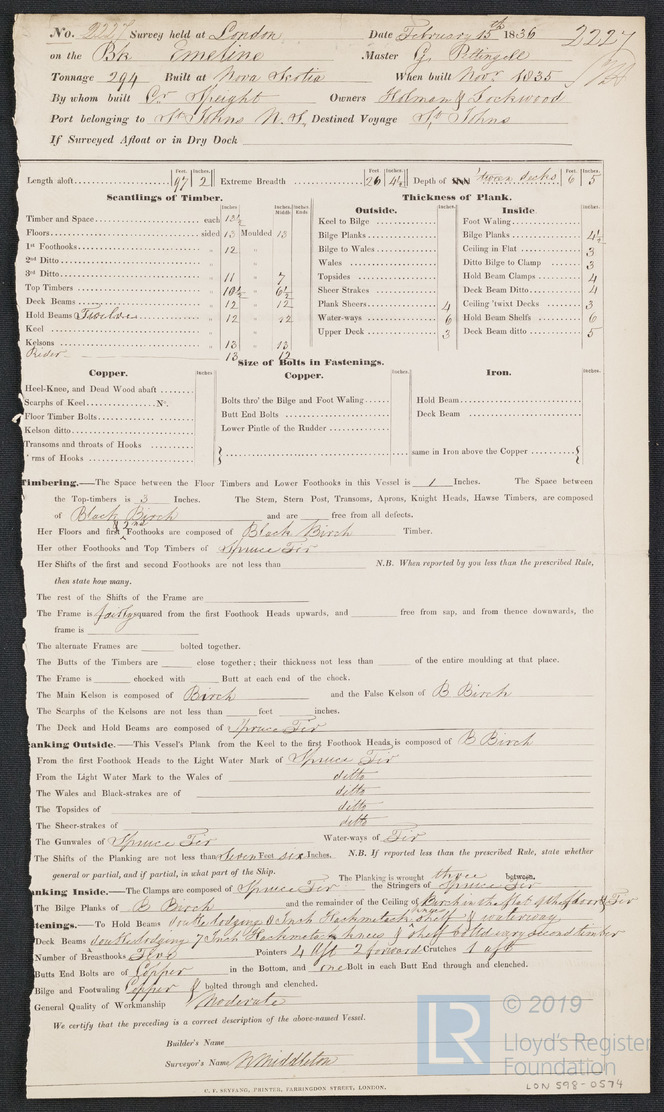 No. 2227 Survey held at London Date February 15th 1836 2227
on the Bk Emeline Master G. Pettingell
Tonnage 294 Built at Nova Scotia When built Novr. 1835
By whom built Speight Owners Holman & Lockwood
Port belonging to St Johns N. S. Destined Voyage St. Johns
If Surveyed Afloat or in Dry Dock
Feet. Inches. Feet. Inches. Feet. Inches.
Length aloft 97 2 Extreme Breadth 26 4½ Depth of between decks 6 5
Scantlings of Timber.
Inches. Inches. Middle Inches. Ends
Timber and Space each 13½
Floors sided 13 Moulded 13
1st Foothooks „ 12 „
2nd Ditto „ „
3rd Ditto „ 11 „ 7
Top Timbers „ 10½ „ 6½
Deck Beams „ 12 „ 12
Hold Beams Twelve „ 12 „ 12
Keel „ „
Kelsons „ 13 „ 13
Rider 13 12
Thickness of Plank.
Outside.
Inches.
Keel to Bilge
Bilge Planks
Bilge to Wales
Wales
Topsides
Sheer Strakes
Plank Sheers 4
Water-ways 6
Upper Deck 3
Inside.
Inches.
Foot Waling
Bilge Planks 4½
Ceiling in Flat 3
Ditto Bilge to Clamp 3
Hold Beam Clamps 4
Deck Beam Ditto 4
Ceiling 'twixt Decks 3
Hold Beam Shelfs 6
Deck Beam ditto 5
Size of Bolts in Fastenings.
Copper.
Inches
Heel-Knee, and Dead Wood abaft
Scarphs of Keel No.
Floor Timber Bolts
Kelson ditto
Transoms and throats of Hooks
rms of Hooks
Copper.
Inches.
Bolts thro' the Bilge and Foot Waling
Butt End Bolts
Lower Pintle of the Rudder
Iron.
Inches.
Hold Beam
Deck Beam
same in Iron above the Copper
Timbering.—The Space between the Floor Timbers and Lower Foothooks in this Vessel is 1 Inches. The Space between
the Top-timbers is 3 Inches. The Stem, Stern Post, Transoms, Aprons, Knight Heads, Hawse Timbers, are composed
of Black Birch and are free from all defects.
Her Floors and first & 2nd Foothooks are composed of Black Birch Timber.
Her other Foothooks and Top Timbers of Spruce Fir
Her Shifts of the first and second Foothooks are not less than N.B. When reported by you less than the prescribed Rule,
then state how many.
The rest of the Shifts of the Frame are
The Frame is fairly squared from the first Foothook Heads upwards, and free from sap, and from thence downwards, the
frame is
The alternate Frames are bolted together.
The Butts of the Timbers are close together; their thickness not less than of the entire moulding at that place.
The Frame is chocked with Butt at each end of the chock.
The Main Kelson is composed of Birch and the False Kelson of B Birch
The Scarphs of the Kelsons are not less than feet inches.
The Deck and Hold Beams are composed of Spruce Fir
anking Outside.—This Vessel's Plank from the Keel to the first Foothook Heads is composed of B Birch
From the first Foothook Heads to the Light Water Mark of Spruce Fir
From the Light Water Mark to the Wales of ditto
The Wales and Black-strakes are of ditto
The Topsides of ditto
The Sheer-strakes of ditto
The Gunwales of Spruce Fir Water-ways of Fir
The Shifts of the Planking are not less than Seven Feet six Inches. N.B. If reported less than the prescribed Rule, state whether
general or partial, and if partial, in what part of the Ship. The Planking is wrought three between.
anking Inside.—The Clamps are composed of Spruce Fir the Stringers of Spruce Fir
The Bilge Planks of B Birch and the remainder of the Ceiling of Birch in the flat of the floor & Fir
tenings.—To Hold Beams double lodging 8 Inch Hackmetack shelf & waterway
Deck Beams double lodging 7 Inch Hackmetack knees & shelf bolted every second timber
Number of Breasthooks Five Pointers 4 Aft 2 forward Crutches 1 aft
Butts End Bolts are of Copper in the Bottom, and one Bolt in each Butt End through and clenched.
Bilge and Footwaling Copper & bolted through and clenched.
General Quality of Workmanship Moderate
We certify that the preceding is a correct description of the above-named Vessel.
Builder's Name
Surveyor's Name W Middleton
C. F. SEYFANG, PRINTER, FARRINGDON STREET, LONDON.
LR © 2019
Lloyd's Register
Foundation
LON 598-0574